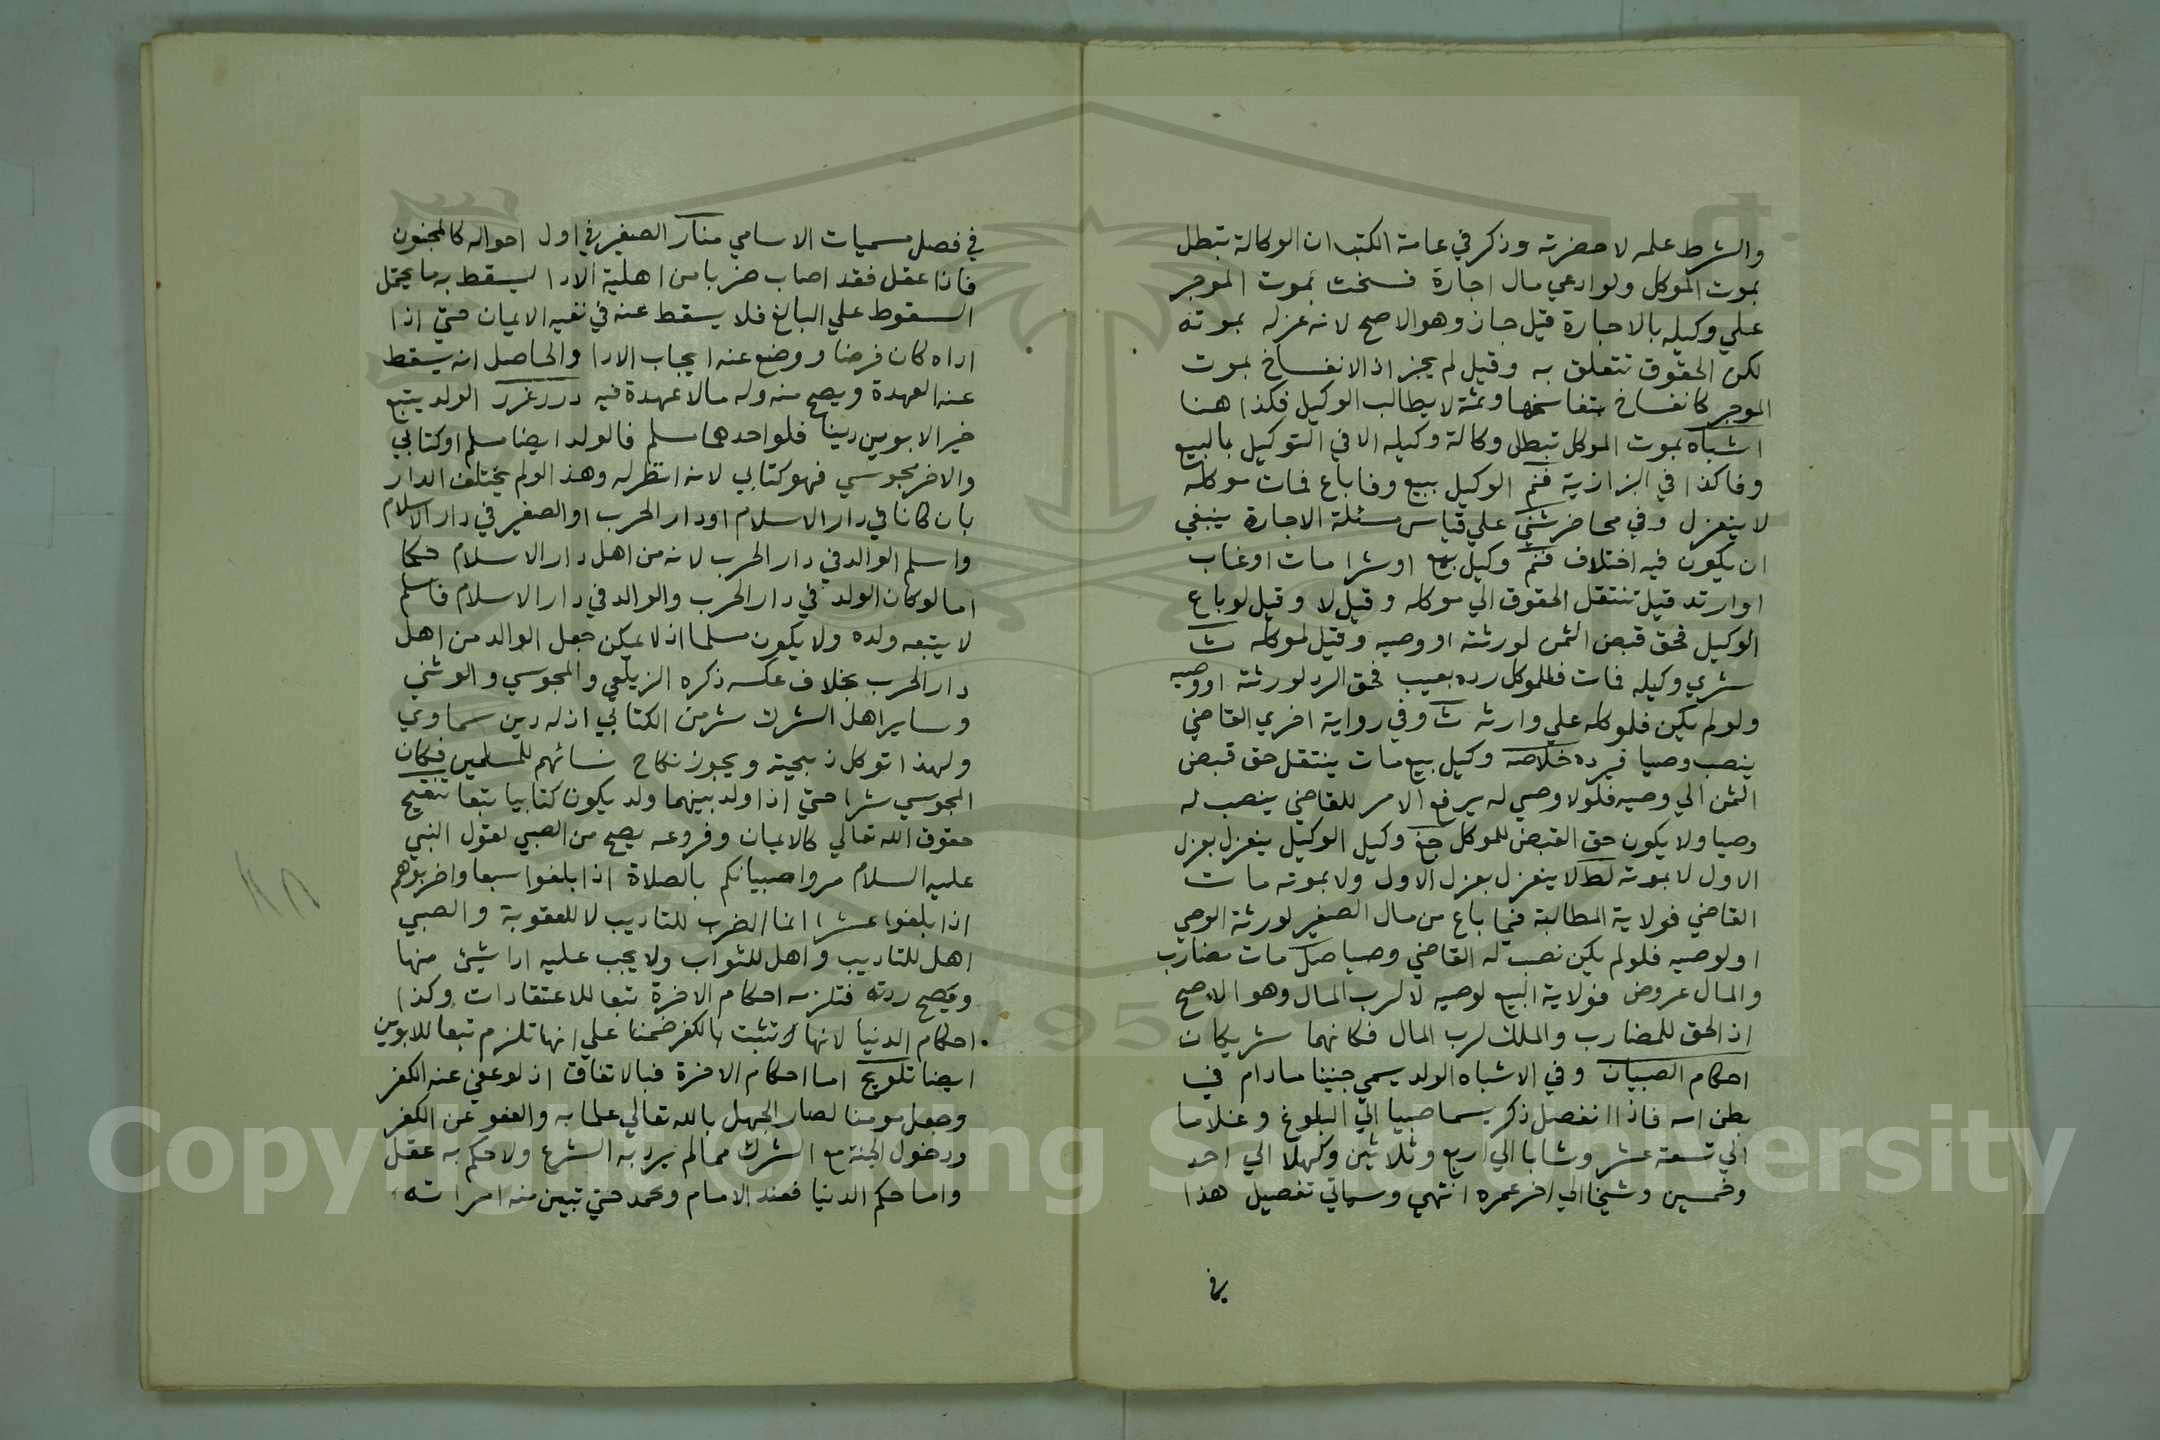 والشرط علمه لا حضرته وذكر في عامة الكتب ان الوكالة تبطل
بموت الموكل ولو ادعي مال اجارة فسخت بموت الموجر
علي وكيله بالاجارة قيل جاز وهو الاصح لانه عزله بموته
لكن الحقوق تتعلق به وقيل لم يجز اذ الانفساخ بموت
الموجر كانفساخ بتفاسخها وثمة لا يطالب الوكيل فكذا هنا
اشباه بموت الموكل تبطل وكالة وكيله الا في التوكيل بالبيع
وفا كذا في البزازية فثم الوكيل ببيع وفا باع فمات موكله
لا ينعزل وفي محاضر شتي علي قياس مسئلة الاجارة ينبغي
ان يكون فيه اختلاف فثم وكيل بيع او شرا مات او غاب
او ارتد قيل تنتقل الحقوق الي موكله وقيل لا وقيل لو باع
الوكيل فحق قبض الثمن لورثته او وصيه وقيل لموكله ث
شري وكيله فمات فللموكل رده بعيب فحق الرد لورثته او وصيه
ولو لم يكن فلموكله علي وارثه ث وفي رواية اخري القاضي
ينصب وصيا فيرده خلاصه وكيل بيع مات ينتقل حق قبض
الثمن الي وصيه فلو لا وصي له يرفع الامر للقاضي ينصب له
وصيا ولا يكون حق القبض للموكل جغ وكيل الوكيل ينعزل بعزل
الاول لا بموته لط لا ينعزل بعزل الاول ولا بموته مات
القاضي فولاية المطالبة فيما باع من مال الصغير لورثة الوصي
او لوصيه فلو لم يكن نصب له القاضي وصيا صل مات مضارب
والمال عروض فولاية البيع لوصيه لا لرب المال وهو الاصح
اذ الحق للمضارب والملك لرب المال فكانهما شريكان
احكام الصبيان وفي الاشباه الولد يسمي جنينا مادام في
بطن امه فاذا انفصل ذكر يسما صبيا الي البلوغ وغلاما
الي تسعة عشر وشابا الي اربع وثلاثين وكهلا الي احد
وخمسين وشيخا الي اخر عمره انتهي وسياتي تفصيل هذا
في
في فصل مسميات الاسامي منار الصغير في اول احواله كالمجنون
فاذا عقل فقد اصاب ضربا من اهلية الادا ليسقط به ما يحتمل
السقوط علي البالغ فلا يسقط عنه في نفيه الايمان حتي اذا
اداه كان فرضا ووضع عنه ايجاب الادا والحاصل انه يسقط
عنه العهدة ويصح منه وله مالا عهدة فيه درر غرر الولد يتبع
خير الابوين دينا فلو احدهما مسلم فالولد ايضا مسلم او كتابي
والاخر مجوسي فهو كتابي لانه انظر له وهذا لو لم يختلف الدار
بان كانا في دار الاسلام او دار الحرب او الصغير في دار الاسلام
واسلم الوالد في دار الحرب لانه من اهل دار الاسلام حكما
اما لو كان الولد في دار الحرب والوالد في دار الاسلام فاسلم
لا يتبعه ولده ولا يكون مسلما اذ لا يمكن جعل الوالد من اهل
دار الحرب بخلاف عكسه ذكره الزيلعي والمجوسي والوثني
وساير اهل الشرك شر من الكتابي اذ له دين سماوي
ولهذا توكل ذبيحته ويجوز نكاح نسائهم للمسلمين فكان
المجوسي شرا حتي اذا ولد بينهما ولد يكون كتابيا تبعا تنقيح
حقوق الله تعالي كالايمان وفروعه يصح من الصبي لقول النبي
عليه السلام مروا صبيانكم بالصلاة اذا بلغوا سبعا واضربوهم
اذا بلغوا عشرا انما الضرب للتاديب لا للعقوبة والصبي
اهل للتاديب واهل للثواب ولا يجب عليه ادا شيئ منها
ويصح ردته فتلزمه احكام الاخرة تبعا للاعتقادات وكذا
احكام الدنيا لانها تثبت بالكفر ضمنا علي انها تلزم تبعا للابوين
ايضا تلويح اما احكام الاخرة فبالاتفاق اذ لو عفي عنه الكفر
وجعل مومنا لصار الجهل بالله تعالي علما به والعفو عن الكفر
ودخول الجنة مع الشرك مما لم يرد به الشرع ولا حكم به عقل
واما حكم الدنيا فعند الامام ومحمد حتي تبين منه امراته
Copyright © King Saud University
1957